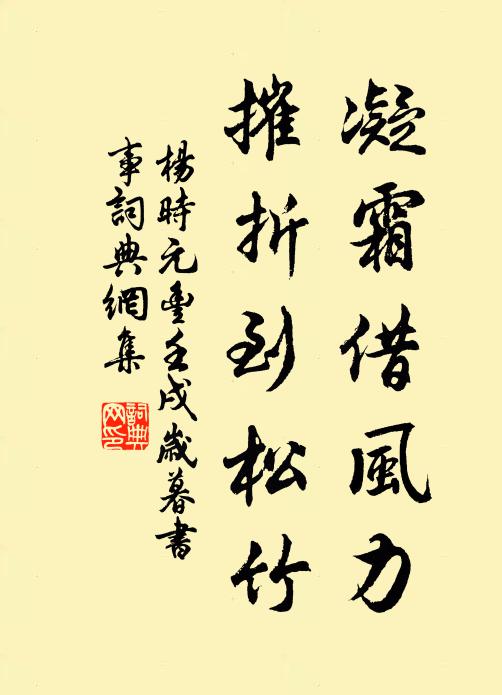 凝霜借風力
摧折到松竹
楊時元豐壬戌歲暮書
事詞典網集
詞典網印